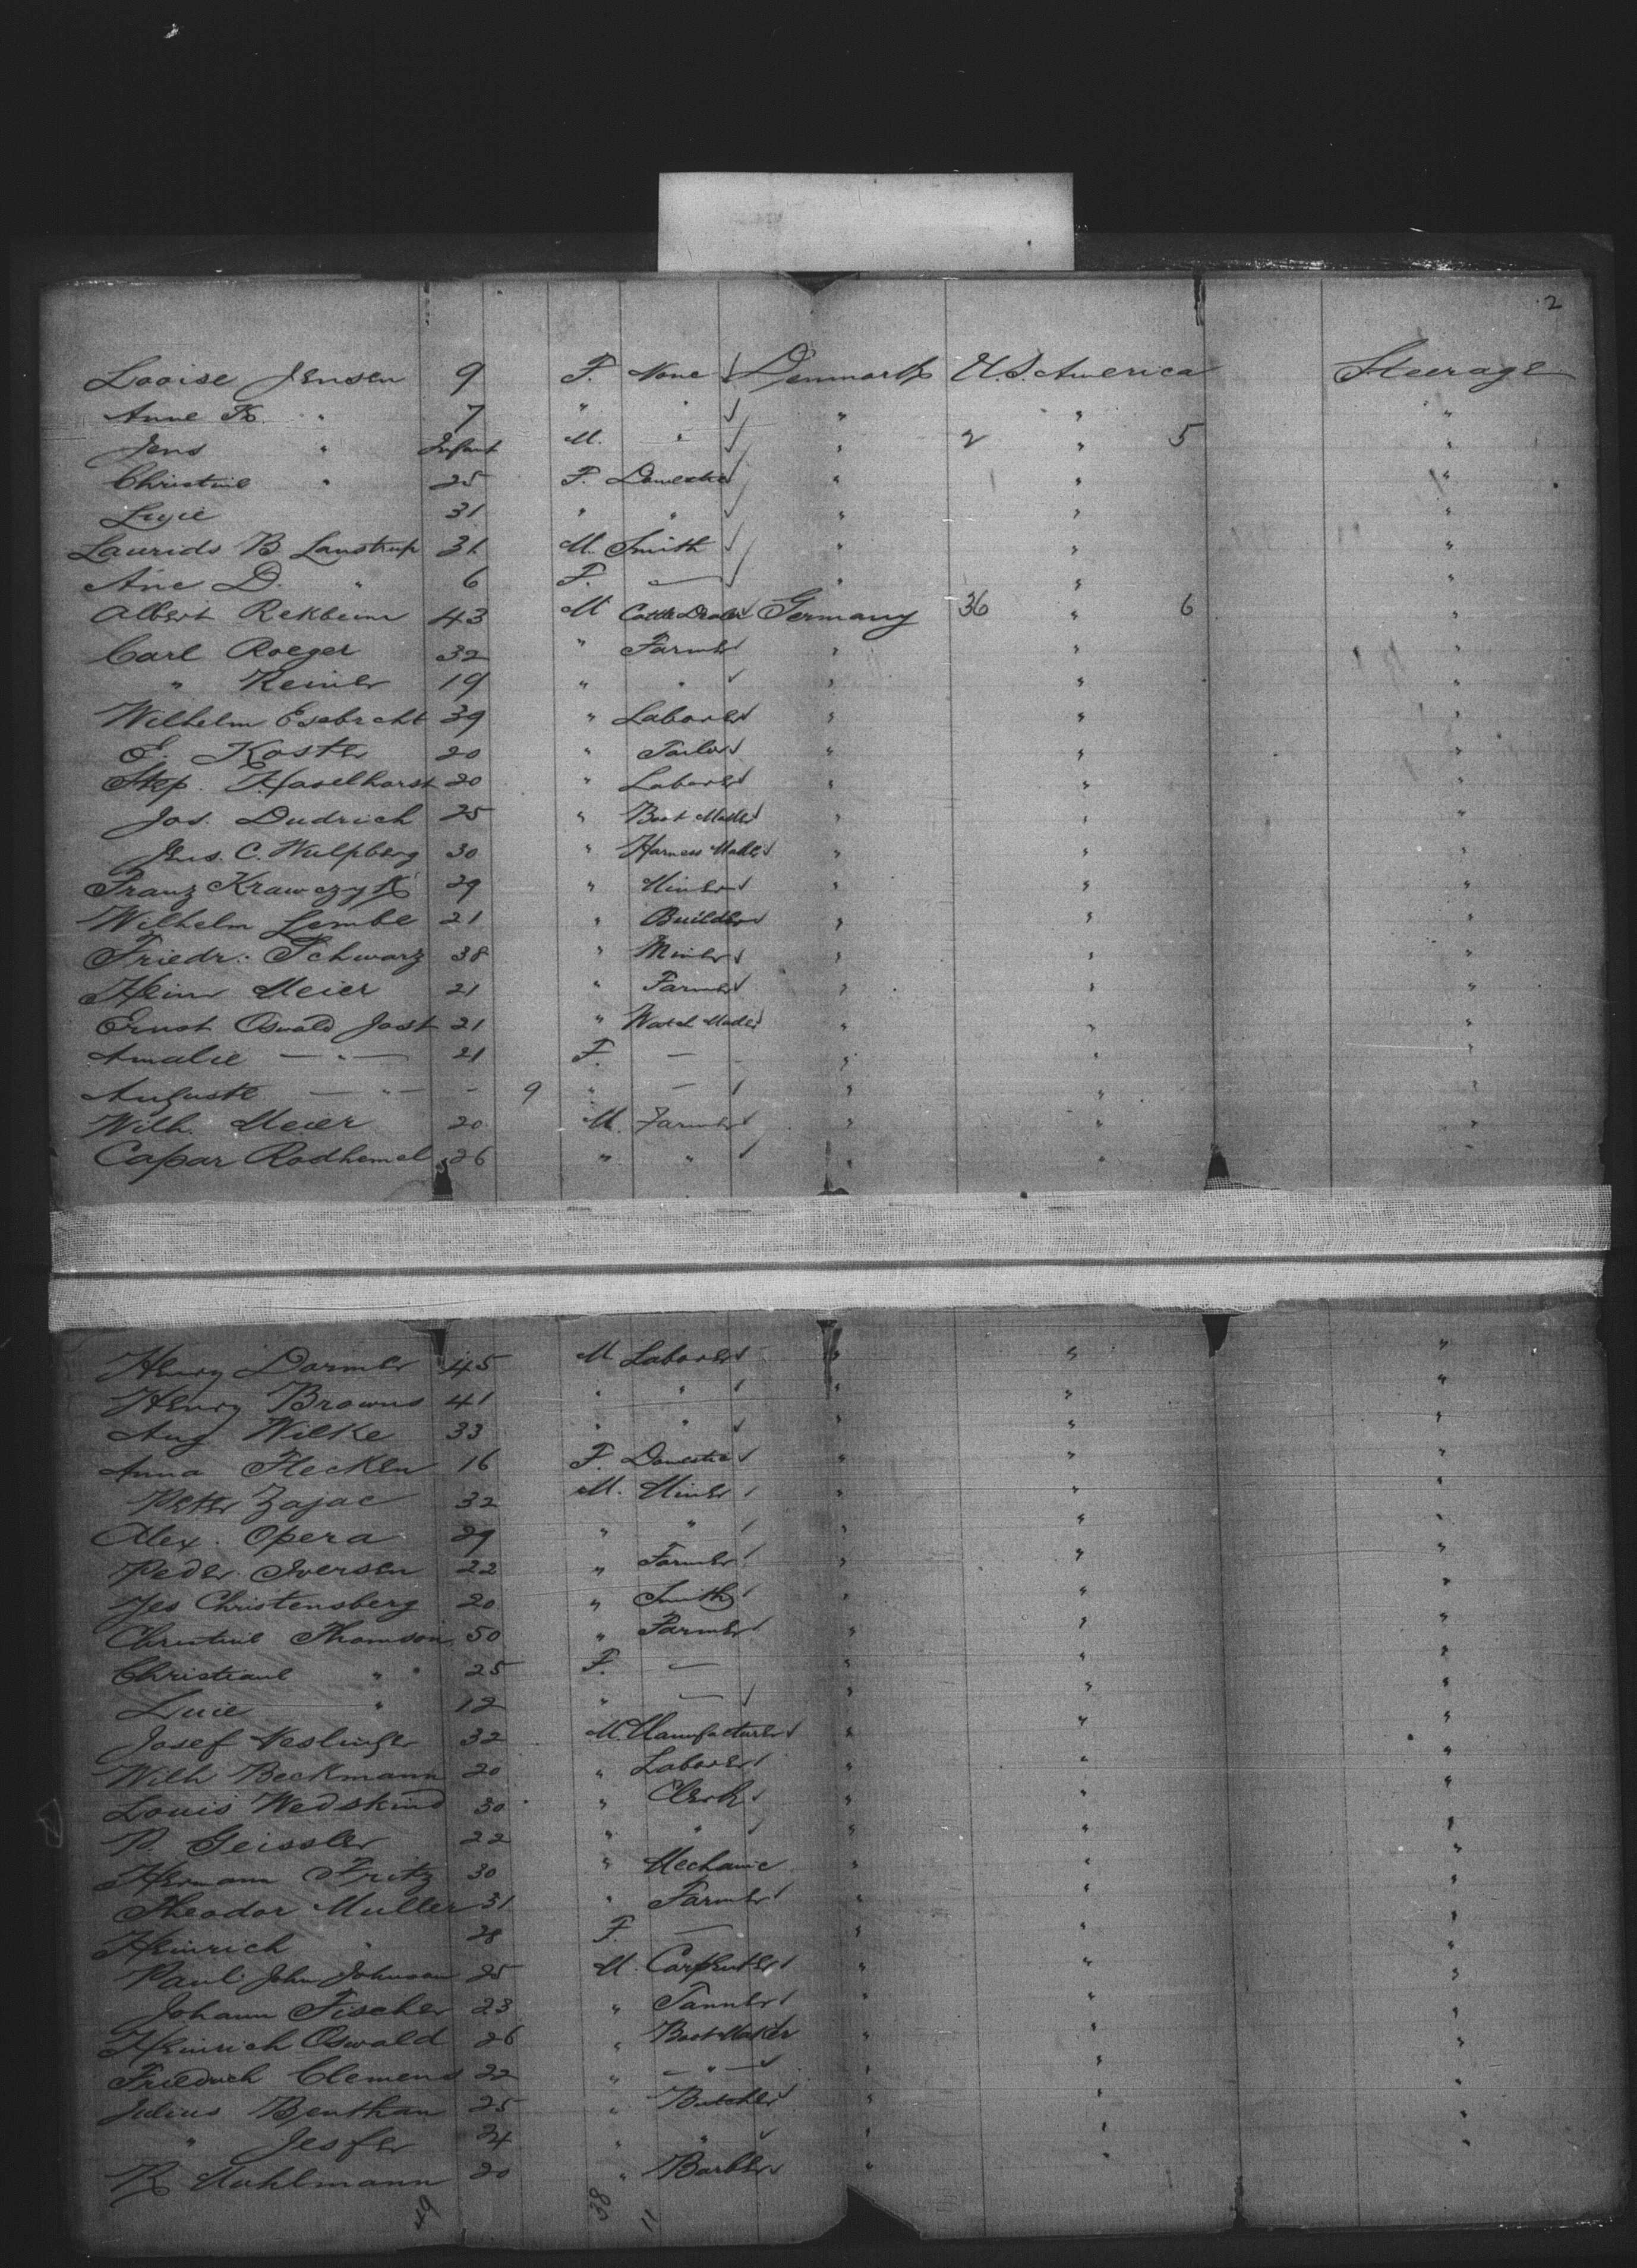 2
Louise Jensen 9 F. None ✓ Denmark U.S. America Steerage
Anne K. " 7 " " ✓ " " "
Jens " Infant M. " ✓ " 2 " 5 "
Christine " 25 F. Domestic ✓ " " "
31 " " ✓ " " "
Laurids B. Laustrup 31 M. Smith ✓ " " "
Ane D. " 6 F. — ✓ " " "
Albert Rekbein 43 M Cattle Dealer ✓ Germany 36 " 6 "
Carl Roeger 32 " Farmer " " "
" Reiner 19 " " ✓ " " "
Wilhelm Esebrecht 39 " Laborer ✓ " " "
E. Koster 20 " Tailor ✓ " " "
Step. Haselhorst 20 " Laborer ✓ " " "
Jos. Dudrich 25 " Boot Maker ✓ " " "
Jens. C. Wulpberg 30 " Harness Maker ✓ " " "
Franz Krawczyk 29 " Miner ✓ " " "
Wilhelm Lembe 21 " Builder ✓ " " "
Friedr. Schwarz 38 " Miner ✓ " " "
Heinr Meier 21 " Farmer ✓ " " "
Ernst Oswald Jost 21 " Watch Maker ✓ " " "
Amalie — " — 21 F. — " " "
Auguste — " — - 9 " — ✓ " " "
Wilh. Meier 20 M. Farmer ✓ " " "
Caspar Rodhemel 26 " " ✓ " "
Henry Darmer 45 M Laborer ✓ " " "
Henry Browns 41 " " ✓ " " "
Aug Wilke 33 " " ✓ " " "
Anna Flecken 16 F. Domestic ✓ " " "
Peter Zajac 32 M. Miner ✓ " " "
Alex. Opera 29 " " ✓ " " "
Peder Iversen 22 " Farmer ✓ " " "
Jes Christensberg 20 " Smith ✓ " " "
Christine Thomson 50 " Farmer ✓ " " "
Christiane " 25 F. — " " "
Lucie " 12 " — ✓ " " "
Josef Neslinger 32 M. Manufacturer ✓ " " "
Wilh Beckmann 20 " Laborer ✓ " " "
Louis Wedskind 30 " Clerk ✓ " " "
P. Geissler 22 " " ✓ " " "
Hermann Fritz 30 " Mechanic " " "
Theodor Muller 31 " Farmer ✓ " " "
Heinrich " 28 F. — " " "
Paul John Johnson 25 M. Carpenter ✓ " " "
Johann Fischer 23 " Tanner ✓ " " "
Heinrich Oswald 26 " Boot Maker " " "
Friedrich Clemens 22 " — " — ✓ " " "
Julius Benthan 25 " Butcher ✓ " " "
" Jesfer 24 " " ✓ " " "
R Muhlmann 20 " Barber ✓ "
49 38 11